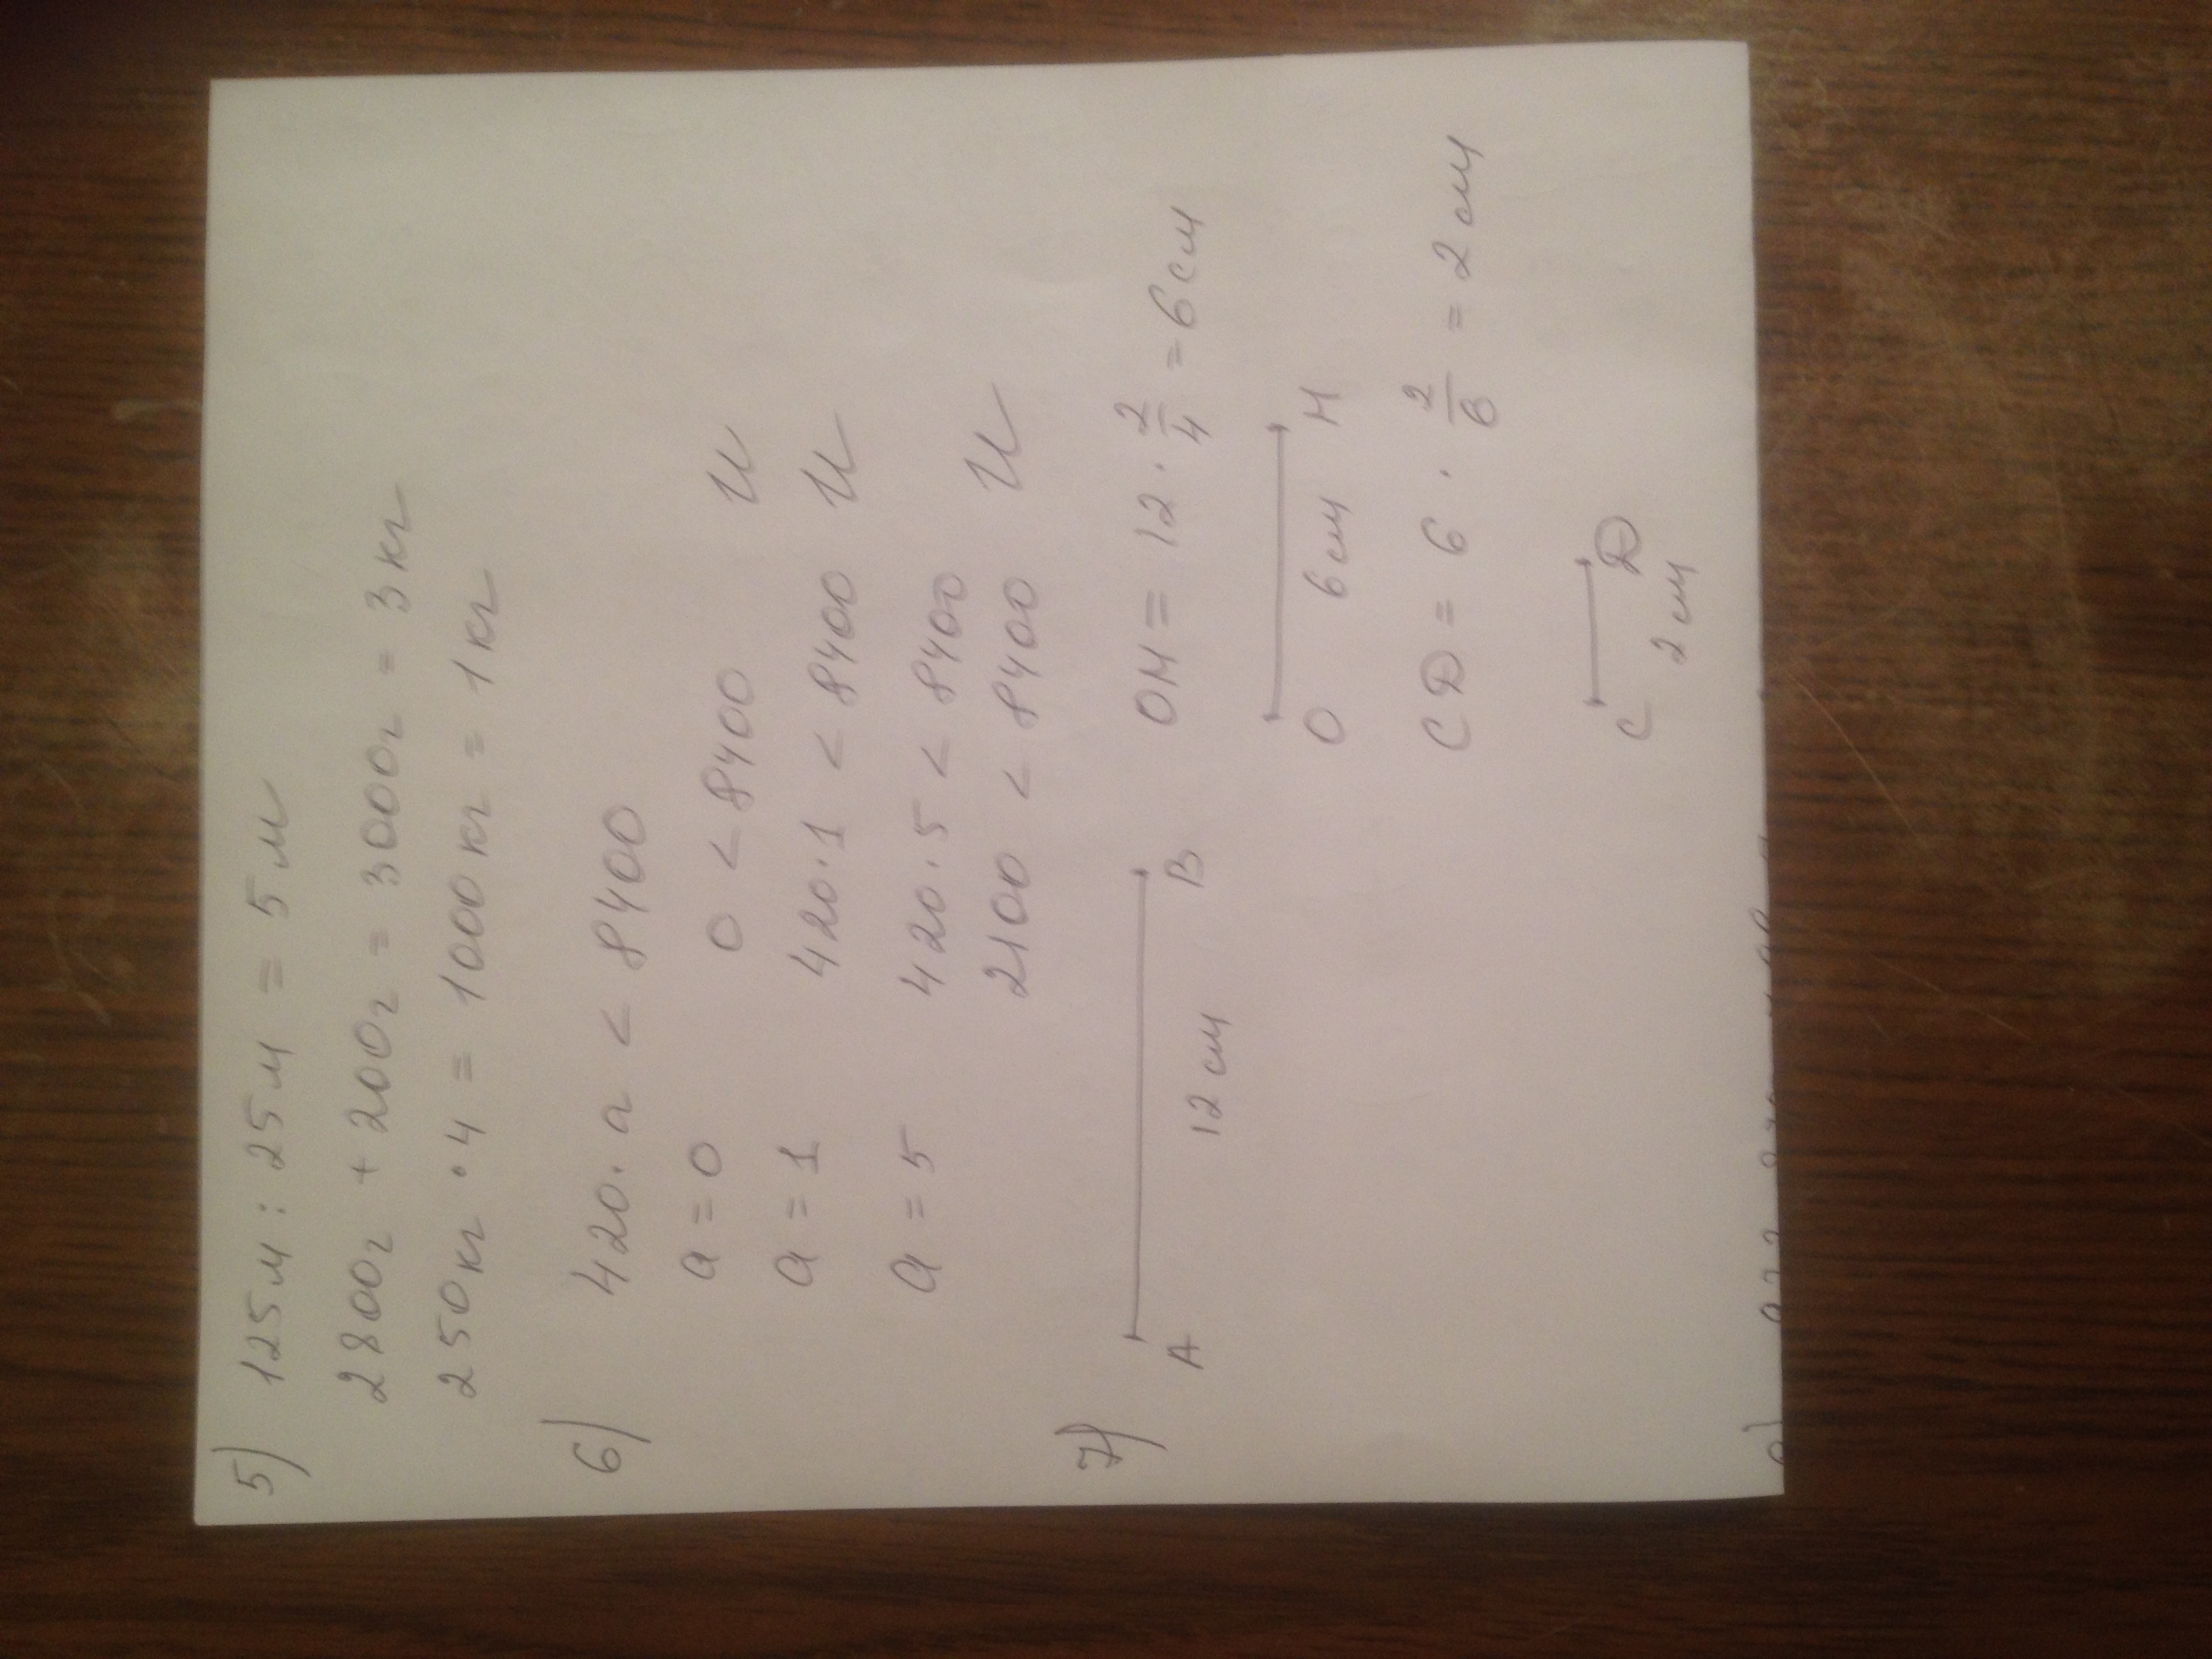 5) 125м : 25м = 5м
2800г + 200г = 3000г = 3кг
250кг • 4 = 1000кг = 1кг
6) 420 · а < 8400
а = 0 0 < 8400 И
а = 1 420 · 1 < 8400 И
а = 5 420 · 5 < 8400
2100 < 8400 И
7) А 12 см В
ОМ = 12 · 2/4 = 6 см
О 6 см М
CD = 6 · 2/6 = 2 см
C D
2 см